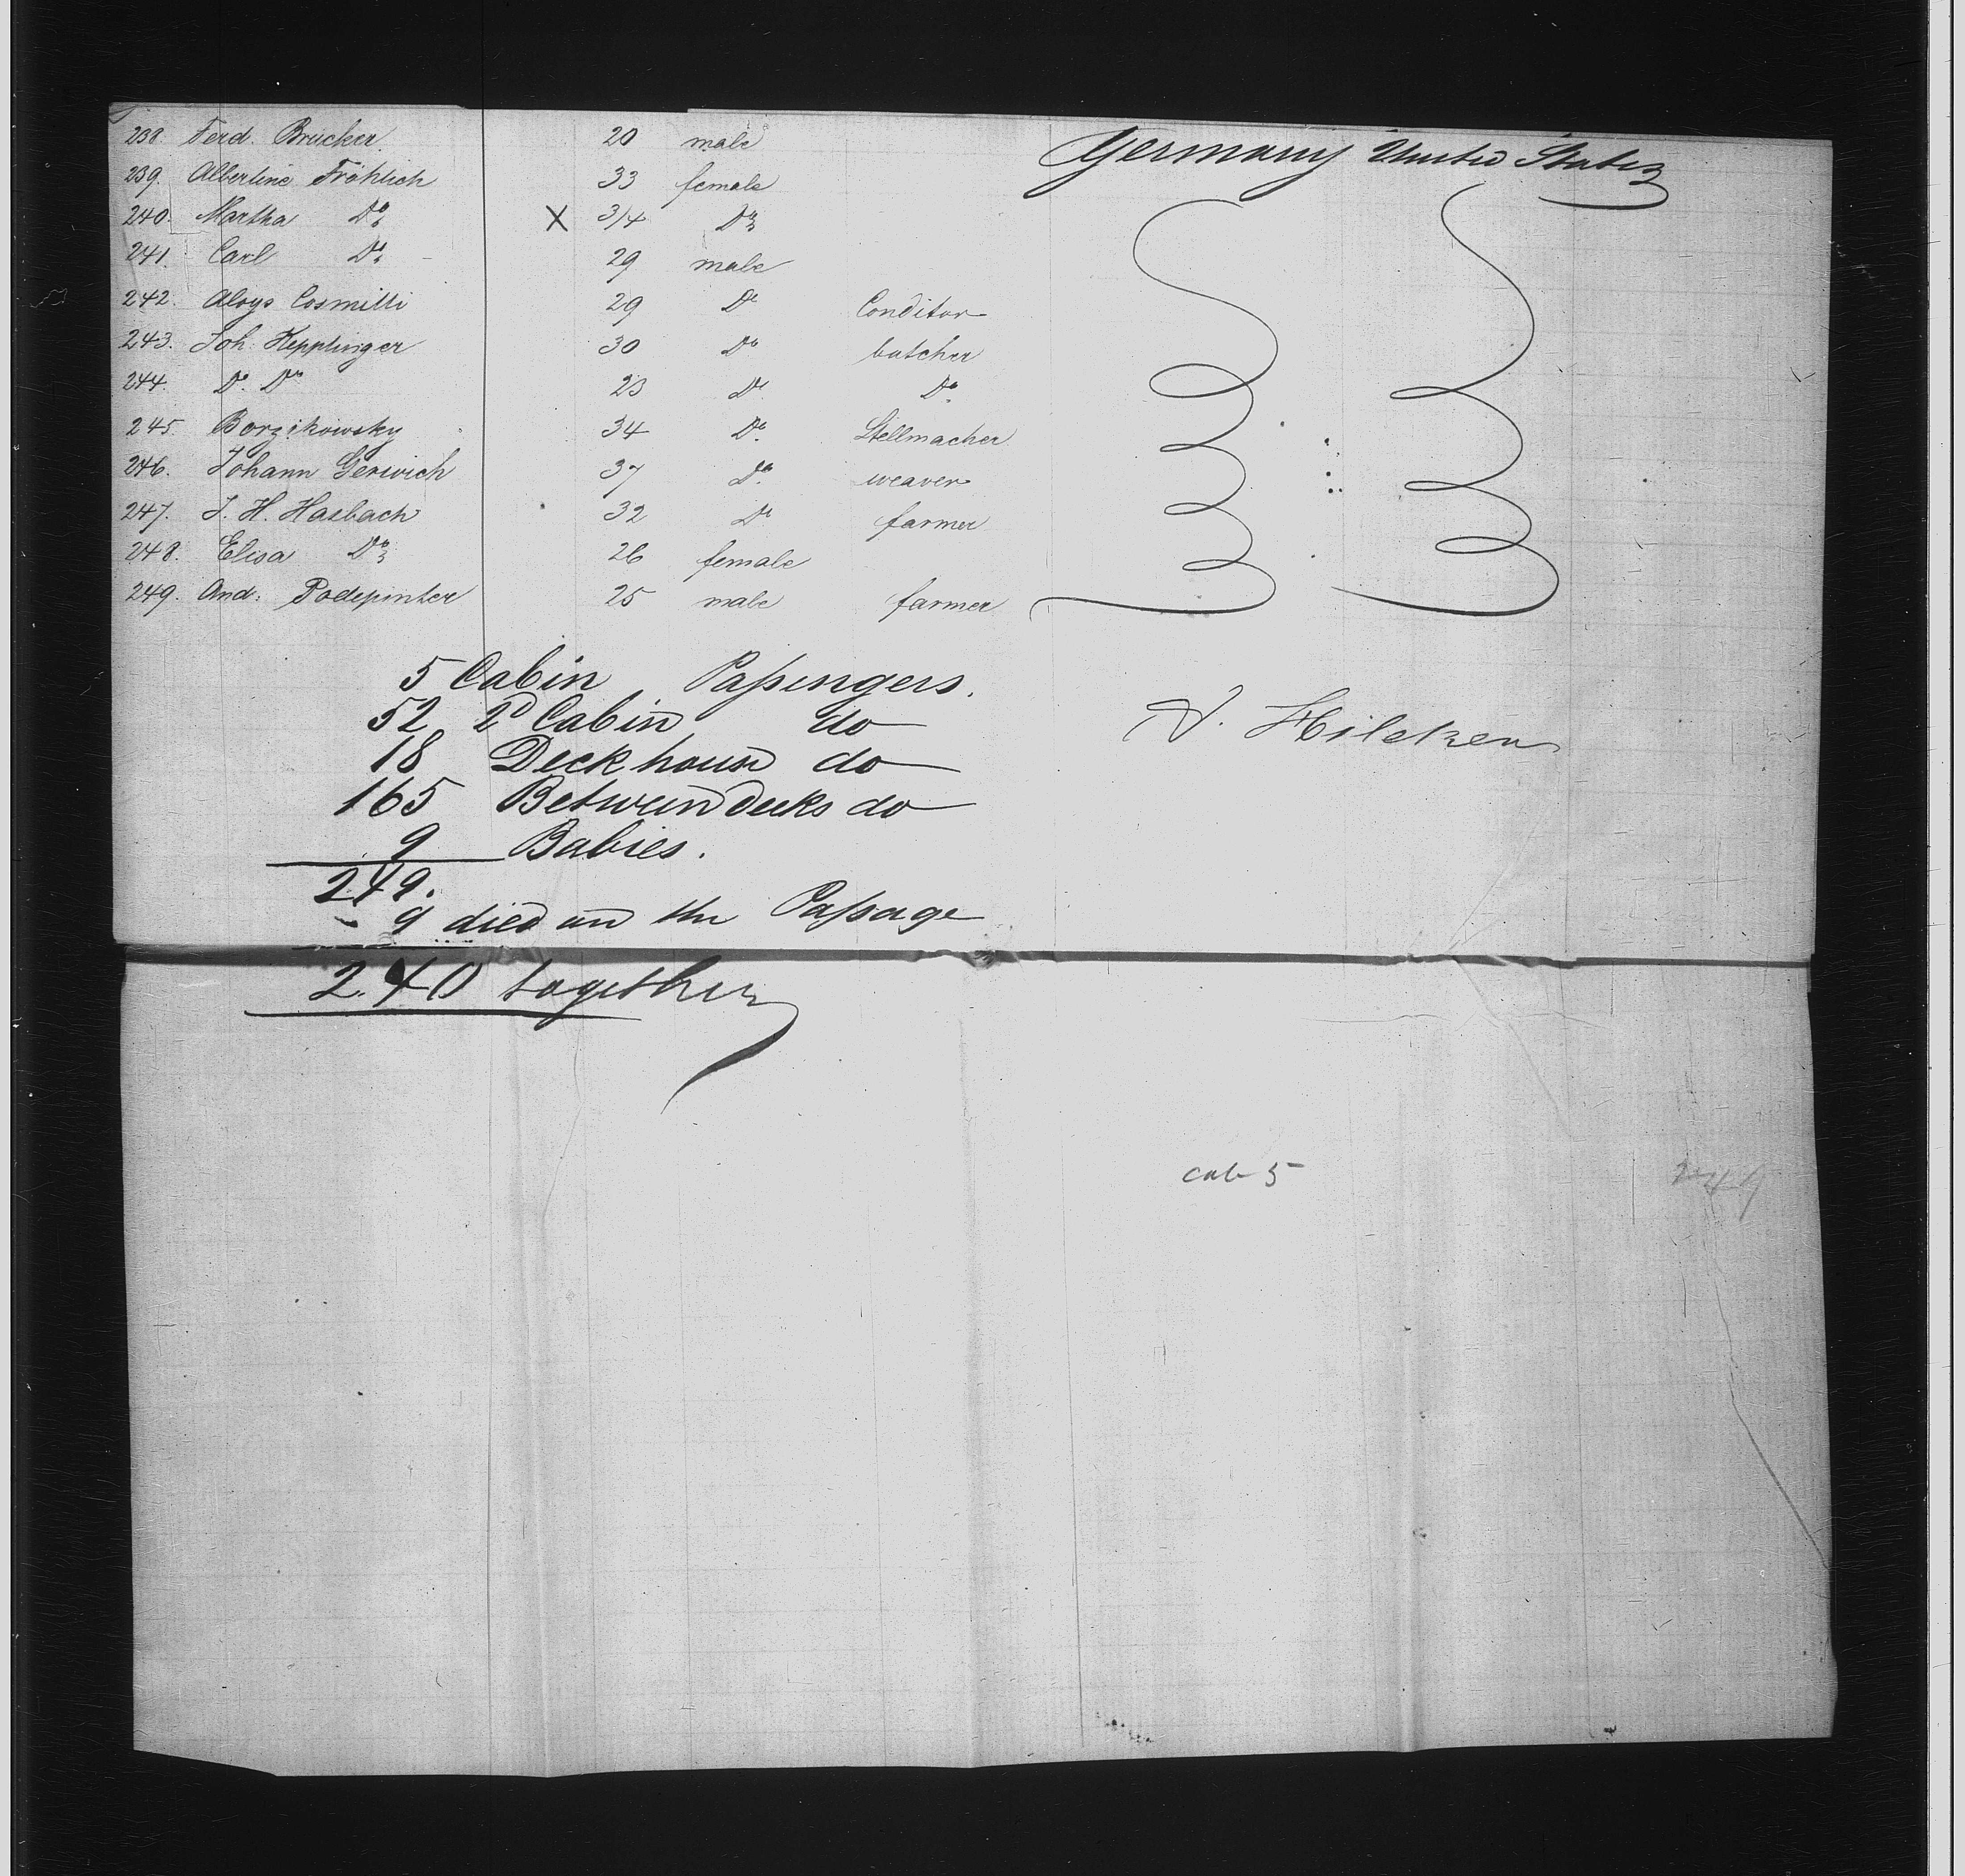 238. Ferd. Brücker. 20 male Germany United States
239. Albertine Fröhlich 33 female
240. Martha Do X 3/4 Do
241. Carl Do 29 male
242. Aloys Cosmitti 29 Do Conditor
243. Joh. Hepplinger 30 Do butcher
244. Do. Do 23 Do Do.
245. Borzikowsky 34 Do. Stellmacher
246. Johann Gerwich 37 Do. weaver
247. J. H. Hasbach 32 Do farmer
248. Elisa Do 26 female
249. And: Podepinter 25 male farmer
5 Cabin Passengers.
52 2d Cabin do
18 Deckhouse do
165 Betweendecks do
9 Babies.
249.
- 9 died on the Passage
240 together
Hilcken
cab 5
249